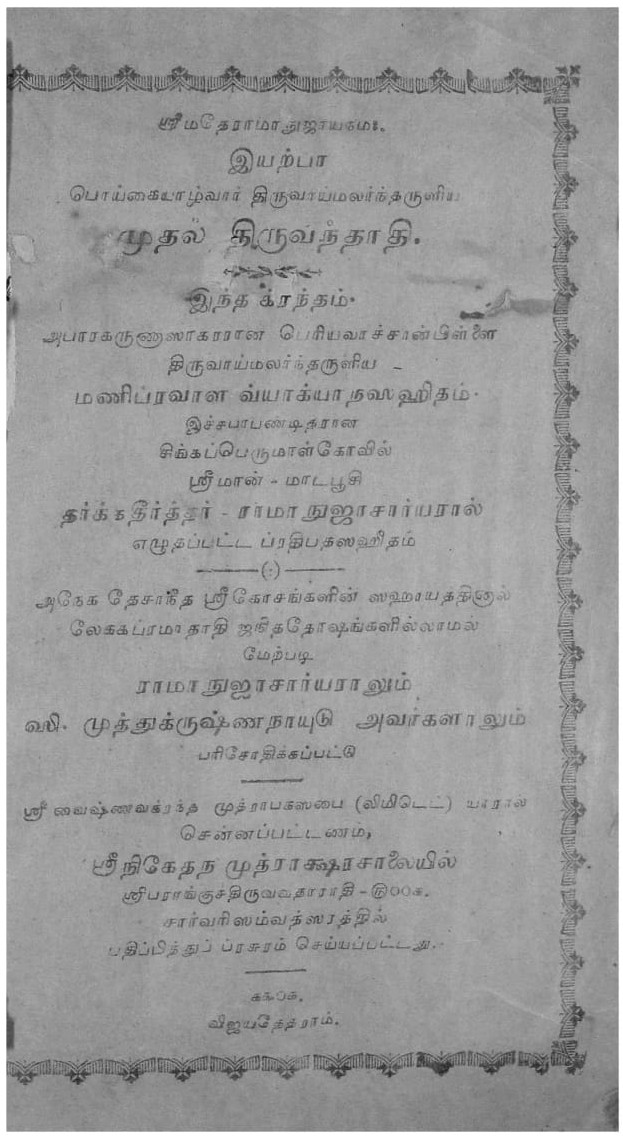 ஸ்ரீமதேராமாநுஜாயநம:.
இயற்பா
பொய்கையாழ்வார் திருவாய்மலர்ந்தருளிய
முதல் திருவந்தாதி.
இந்த க்ரந்தம்.
அபாரகருணாஸாகரரான பெரியவாச்சான்பிள்ளை
திருவாய்மலர்ந்தருளிய -
மணிப்ரவாள வ்யாக்யாநஸஹிதம்.
இச்சபாபண்டிதரான
சிங்கப்பெருமாள்கோவில்
ஸ்ரீமான் - மாடபூசி
தர்க்கதீர்த்தர் - ராமாநுஜாசார்யரால்
எழுதப்பட்ட ப்ரதிபதஸஹிதம்
—(:)—
அநேக தேசாந்த ஸ்ரீகோசங்களின் ஸஹாயத்தினால்
லேககப்ரமாதாதி ஜநிததோஷங்களில்லாமல்
மேற்படி
ராமாநுஜாசார்யராலும்
முத்துக்ருஷ்ணநாயுடு அவர்களாலும்
பரிசோதிக்கப்பட்டு
ஸ்ரீவைஷ்ணவக்ரந்த முத்ராபகஸபை (லிமிடெட்) யாரால்
சென்னப்பட்டணம்,
ஸ்ரீநிகேதந முத்ராக்ஷரசாலையில்
சார்வரிஸம்வத்ஸரத்தில்
பதிப்பித்துப் ப்ரசுரம் செய்யப்பட்டது.